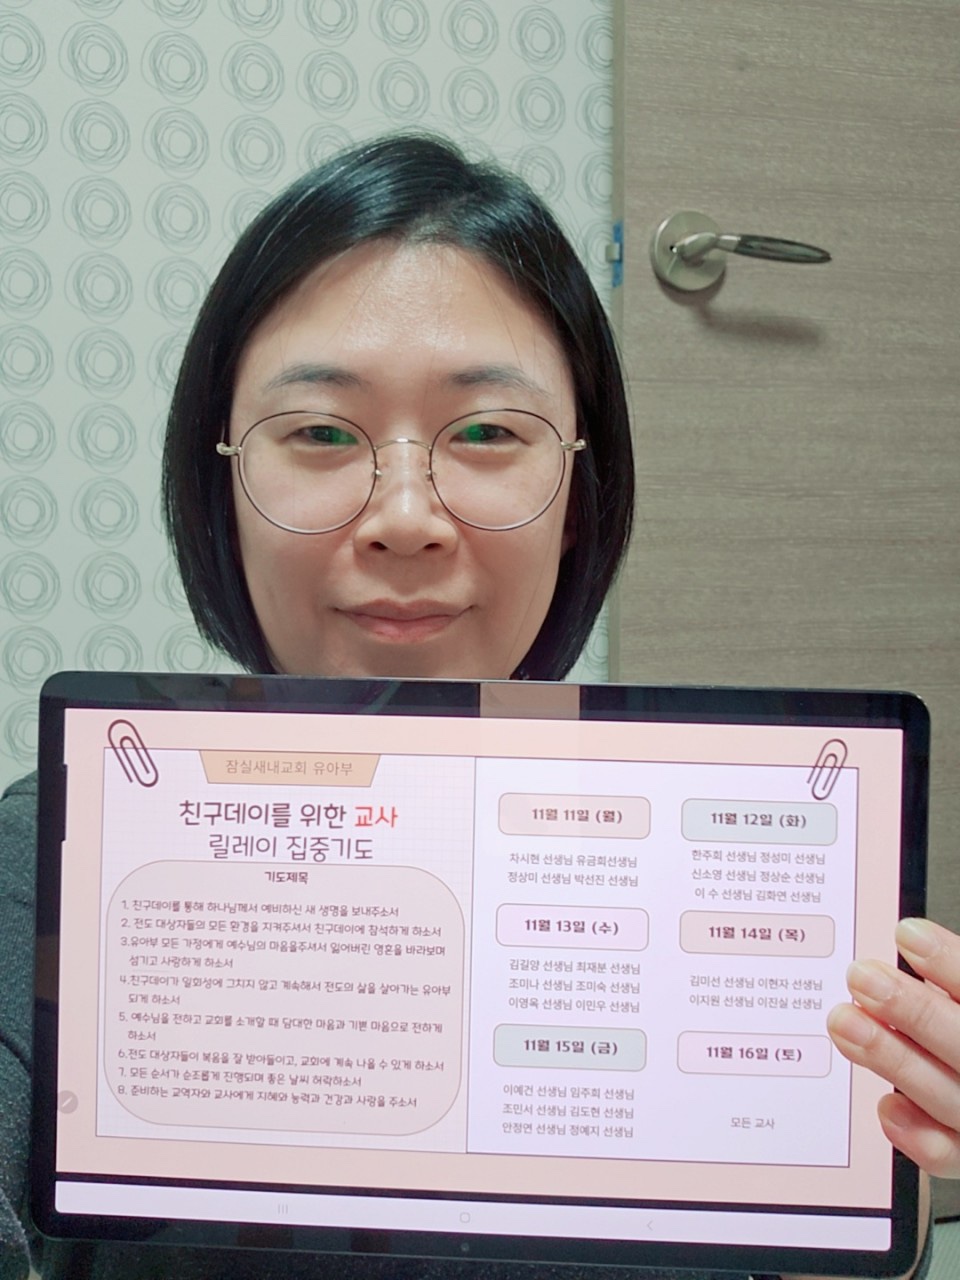 잠실새내교회 유아부
친구데이를 위한 교사
릴레이 집중기도
기도제목
1. 친구데이를 통해 하나님께서 예비하신 새 생명을 보내주소서
2. 전도 대상자들의 모든 환경을 지켜주셔서 친구데이에 참석하게 하소서
3.유아부 모든 가정에게 예수님의 마음을주셔서 잃어버린 영혼을 바라보며
섬기고 사랑하게 하소서
4.친구데이가 일회성에 그치지 않고 계속해서 전도의 삶을 살아가는 유아부
되게 하소서
5. 예수님을 전하고 교회를 소개할 때 담대한 마음과 기쁜 마음으로 전하게
하소서
6.전도 대상자들이 복음을 잘 받아들이고, 교회에 계속 나올 수 있게 하소서
7. 모든 순서가 순조롭게 진행되며 좋은 날씨 허락하소서
8. 준비하는 교역자와 교사에게 지혜와 능력과 건강과 사랑을 주소서
11월 11일 (월)
차시현 선생님 유금희선생님
정상미 선생님 박선진 선생님
11월 12일 (화)
한주희 선생님 정성미 선생님
신소영 선생님 정상순 선생님
이 수 선생님 김화연 선생님
11월 13일 (수)
김길양 선생님 최재분 선생님
조미나 선생님 조미숙 선생님
이영옥 선생님 이민우 선생님
11월 14일 (목)
김미선 선생님 이현자 선생님
이지원 선생님 이진실 선생님
11월 15일 (금)
이예건 선생님 임주희 선생님
조민서 선생님 김도현 선생님
안정연 선생님 정예지 선생님
11월 16일 (토)
모든 교사